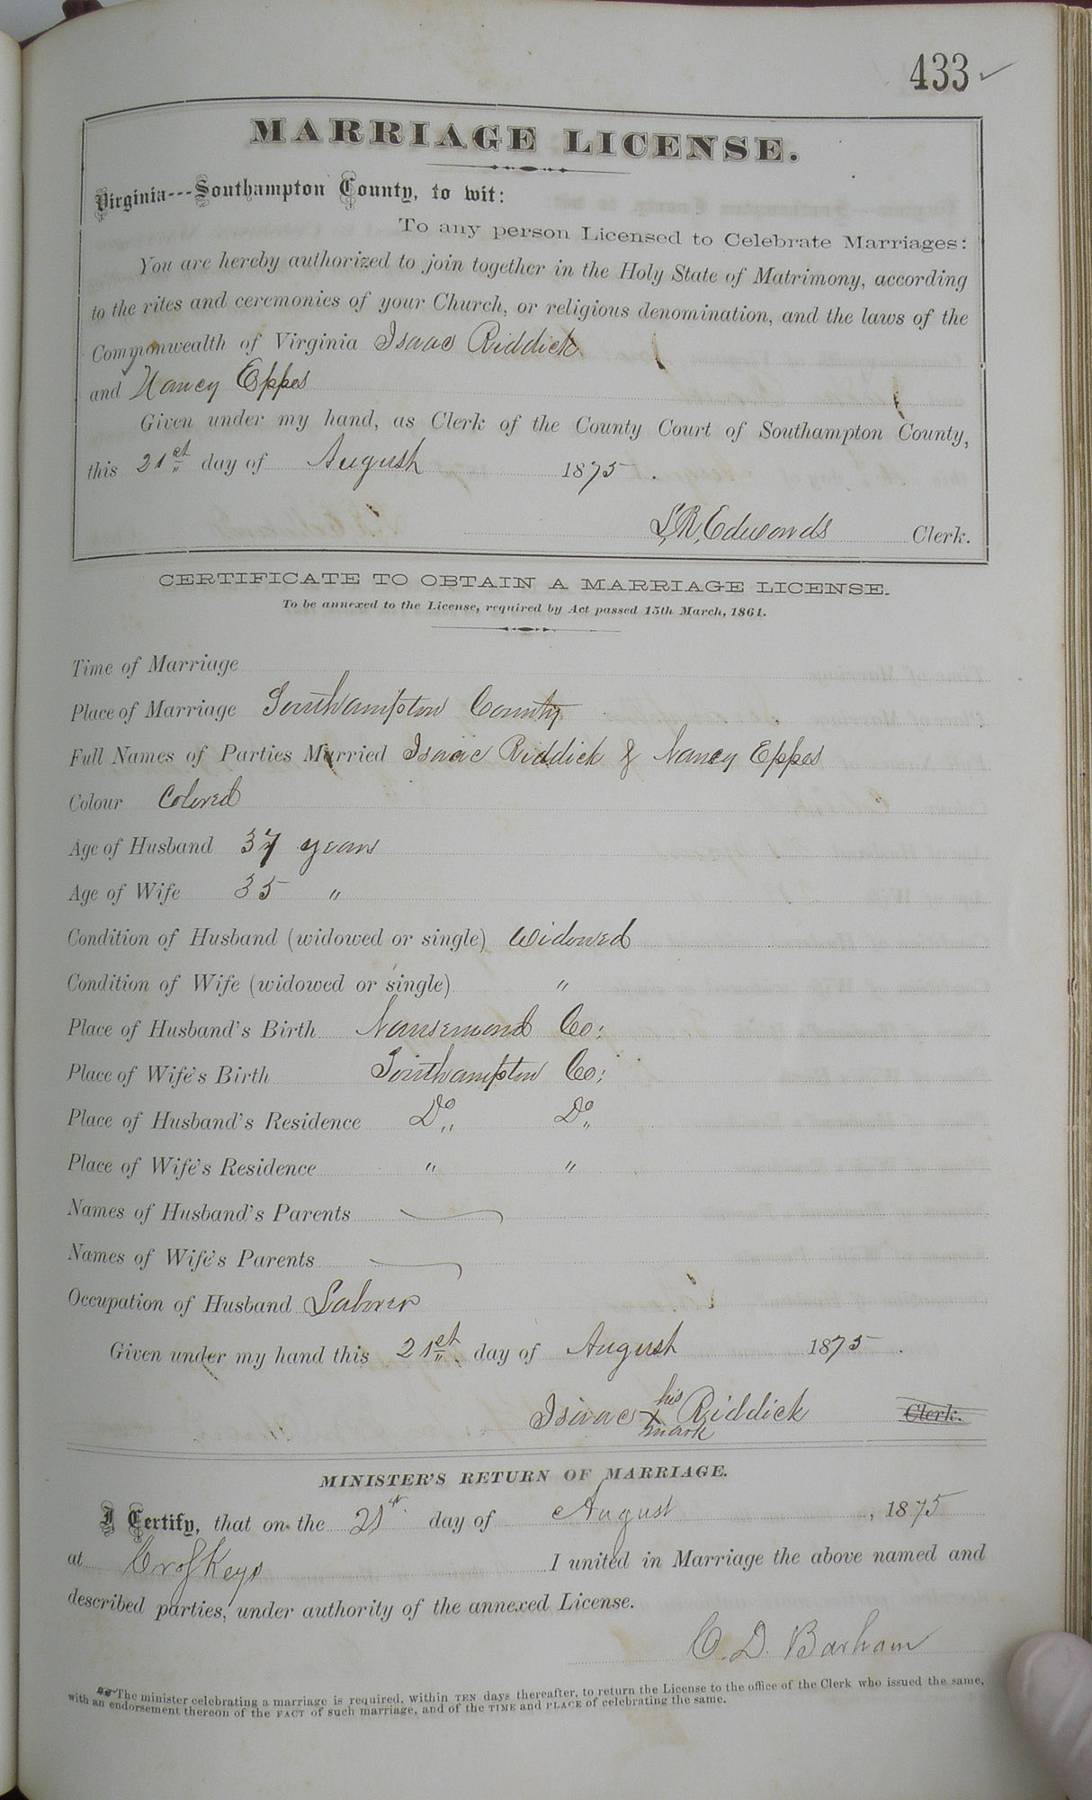 433 ✓
MARRIAGE LICENSE.
Virginia---Southampton County, to wit:
To any person Licensed to Celebrate Marriages:
You are hereby authorized to join together in the Holy State of Matrimony, according
to the rites and ceremonies of your Church, or religious denomination, and the laws of the
Commonwealth of Virginia Isaac Riddick
and Nancy Eppes
Given under my hand, as Clerk of the County Court of Southampton County,
this 21st day of August 1875.
L.R. Edwards Clerk.
CERTIFICATE TO OBTAIN A MARRIAGE LICENSE.
To be annexed to the License, required by Act passed 15th March, 1861.
Time of Marriage
Place of Marriage Southampton County
Full Names of Parties Married Isaac Riddick & Nancy Eppes
Colour Colored
Age of Husband 37 years
Age of Wife 35 "
Condition of Husband (widowed or single) Widowed
Condition of Wife (widowed or single) "
Place of Husband's Birth Nansemond Co:
Place of Wife's Birth Southampton Co:
Place of Husband's Residence Do Do
Place of Wife's Residence " "
Names of Husband's Parents
Names of Wife's Parents
Occupation of Husband Laborer
Given under my hand this 21st day of August 1875.
Isaac his X mark Riddick Clerk.
MINISTER'S RETURN OF MARRIAGE.
I Certify, that on the 21st day of August, 1875
at Crosf Keys I united in Marriage the above named and
described parties, under authority of the annexed License.
C. D. Barham
The minister celebrating a marriage is required, within TEN days thereafter, to return the License to the office of the Clerk who issued the same,
with an endorsement thereon of the FACT of such marriage, and of the TIME and PLACE of celebrating the same.